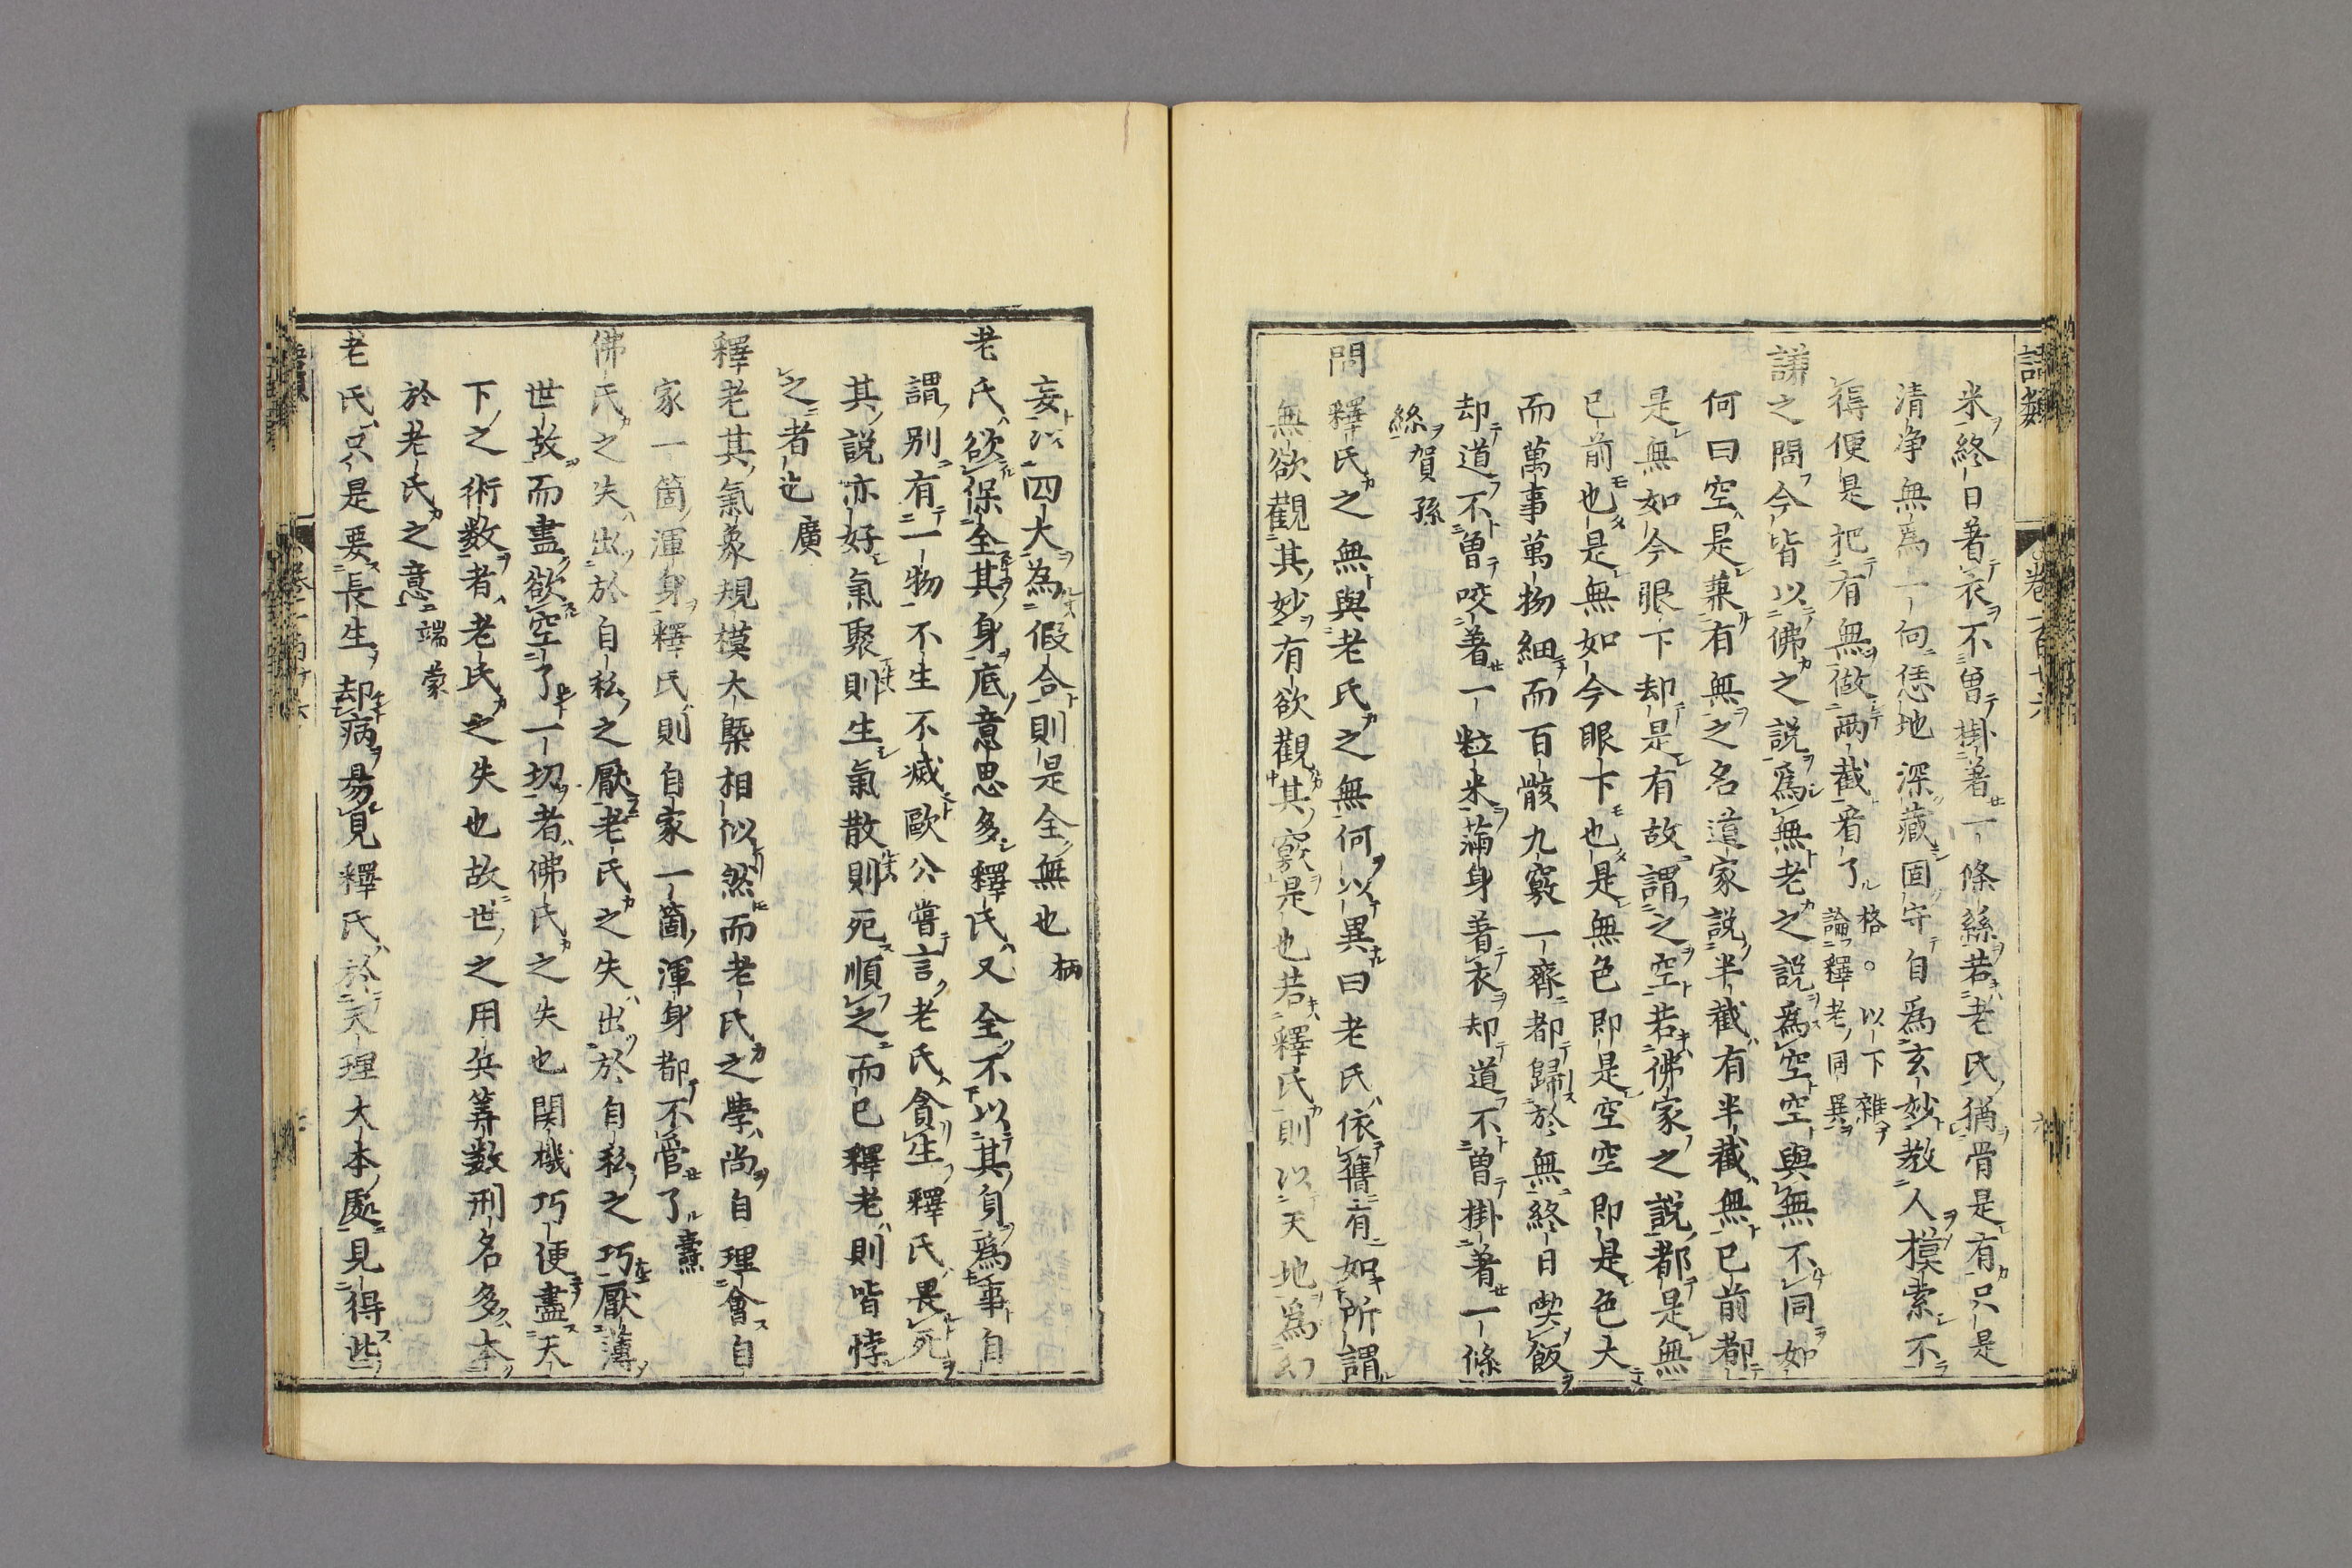 語類 卷一百廿六
米終日著衣不曽掛著一條絲若老氏猶骨是有只是
清净無爲一向恁地深藏固守自爲玄妙教人摸索不
得便是把有無做兩截看了格。以下雜論釋老同異
謙之問今皆以佛之説爲無老之説爲空空與無不同如
何曰空是兼有無之名道家説半截有半截無已前都
是無如今眼下却是有故謂之空若佛家之説都是無
已前也是無如今眼下也是無色即是空空即是色大
而萬事萬物細而百骸九竅一齊都歸於無終日喫飯
却道不曽咬著一粒米滿身着衣却道不曽掛著一條
絲賀孫
問釋氏之無與老氏之無何以異曰老氏依舊有如所謂
無欲觀其妙有欲觀其竅是也若釋氏則以天地爲幻
妄以四大為假合則是全無也柄
老氏欲保全其身底意思多釋氏又全不以其身爲事自
謂別有一物不生不滅歐公嘗言老氏貪生釋氏畏死
其説亦好氣聚則生氣散則死順之而已釋老則皆悖
之者也廣
釋老其氣象規模大槩相似然而老氏之學尚自理會自
家一箇渾身釋氏則自家一箇渾身都不管了燾
佛氏之失出於自私之厭老氏之失出於自私之巧厭薄
世故而盡欲空了一切者佛氏之失也関機巧便盡天
下之術数者老氏之失也故世之用兵筭数刑名多本
於老氏之意端蒙
老氏只是要長生却病易見釋氏於天理大本處見得些